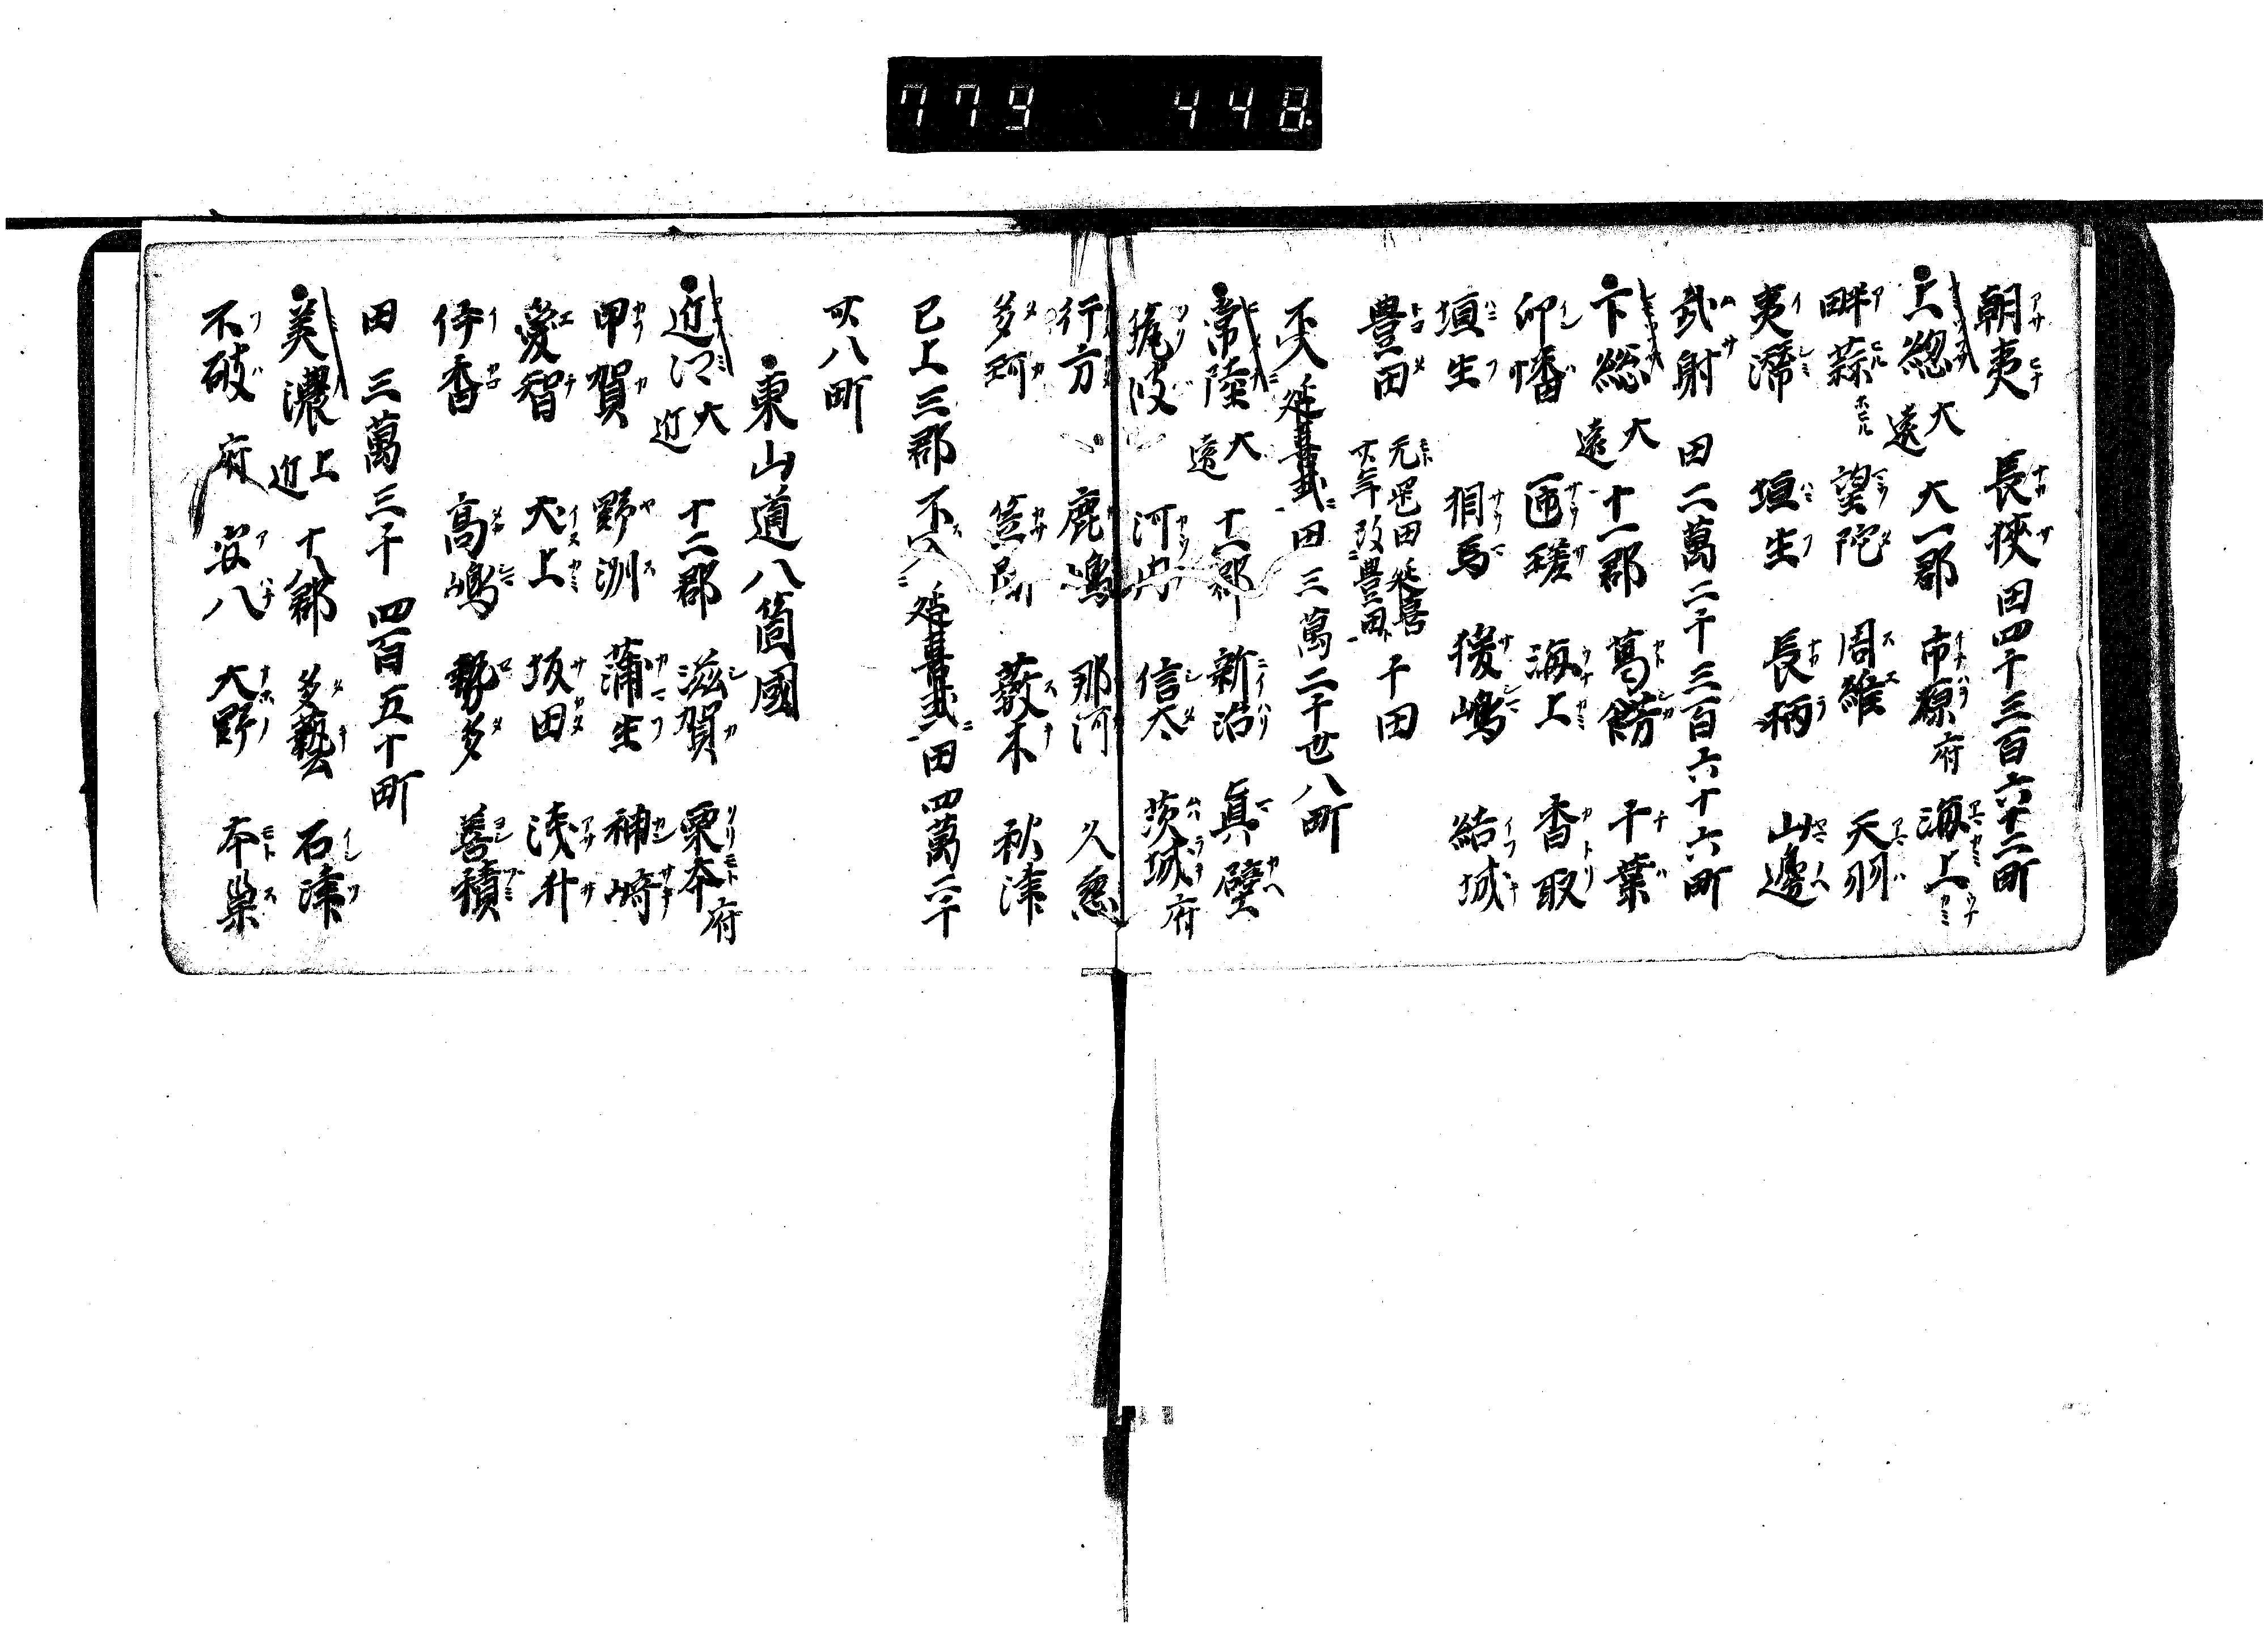 779 448
朝夷 長狹 田四千三百六十二町
上総 大遠 大一郡 市原府 海上
畔蒜 望陀 周維 天羽
夷灊 垣生 長柄 山邊
武射 田二萬二千三百六十六町
下総 大遠 十一郡 葛餝 千葉
印幡 匝瑳 海上 香取
垣生 相馬 猨嶋 結城
豊田 元岡田延喜 四年改豊田ト 千田
不入延喜式ニ 田三萬二千世八町
常陸 大遠 十一郡 新治 真壁
筑波 河内 信太 茨城府
行方 鹿嶋 那河 久慈
多珂 笠間 薮木 秋津
已上三郡不入延喜式ニ 田四萬二千
八町
東山道八箇國
近江 大近 十二郡 滋賀 栗本府
甲賀 野洲 蒲生 神崎
愛智 犬上 坂田 淺井
伊香 高嶋 勢多 善積
田三萬三千四百五十町
美濃 上近 十八郡 多藝 石津
不破 府 安八 大野 本巣